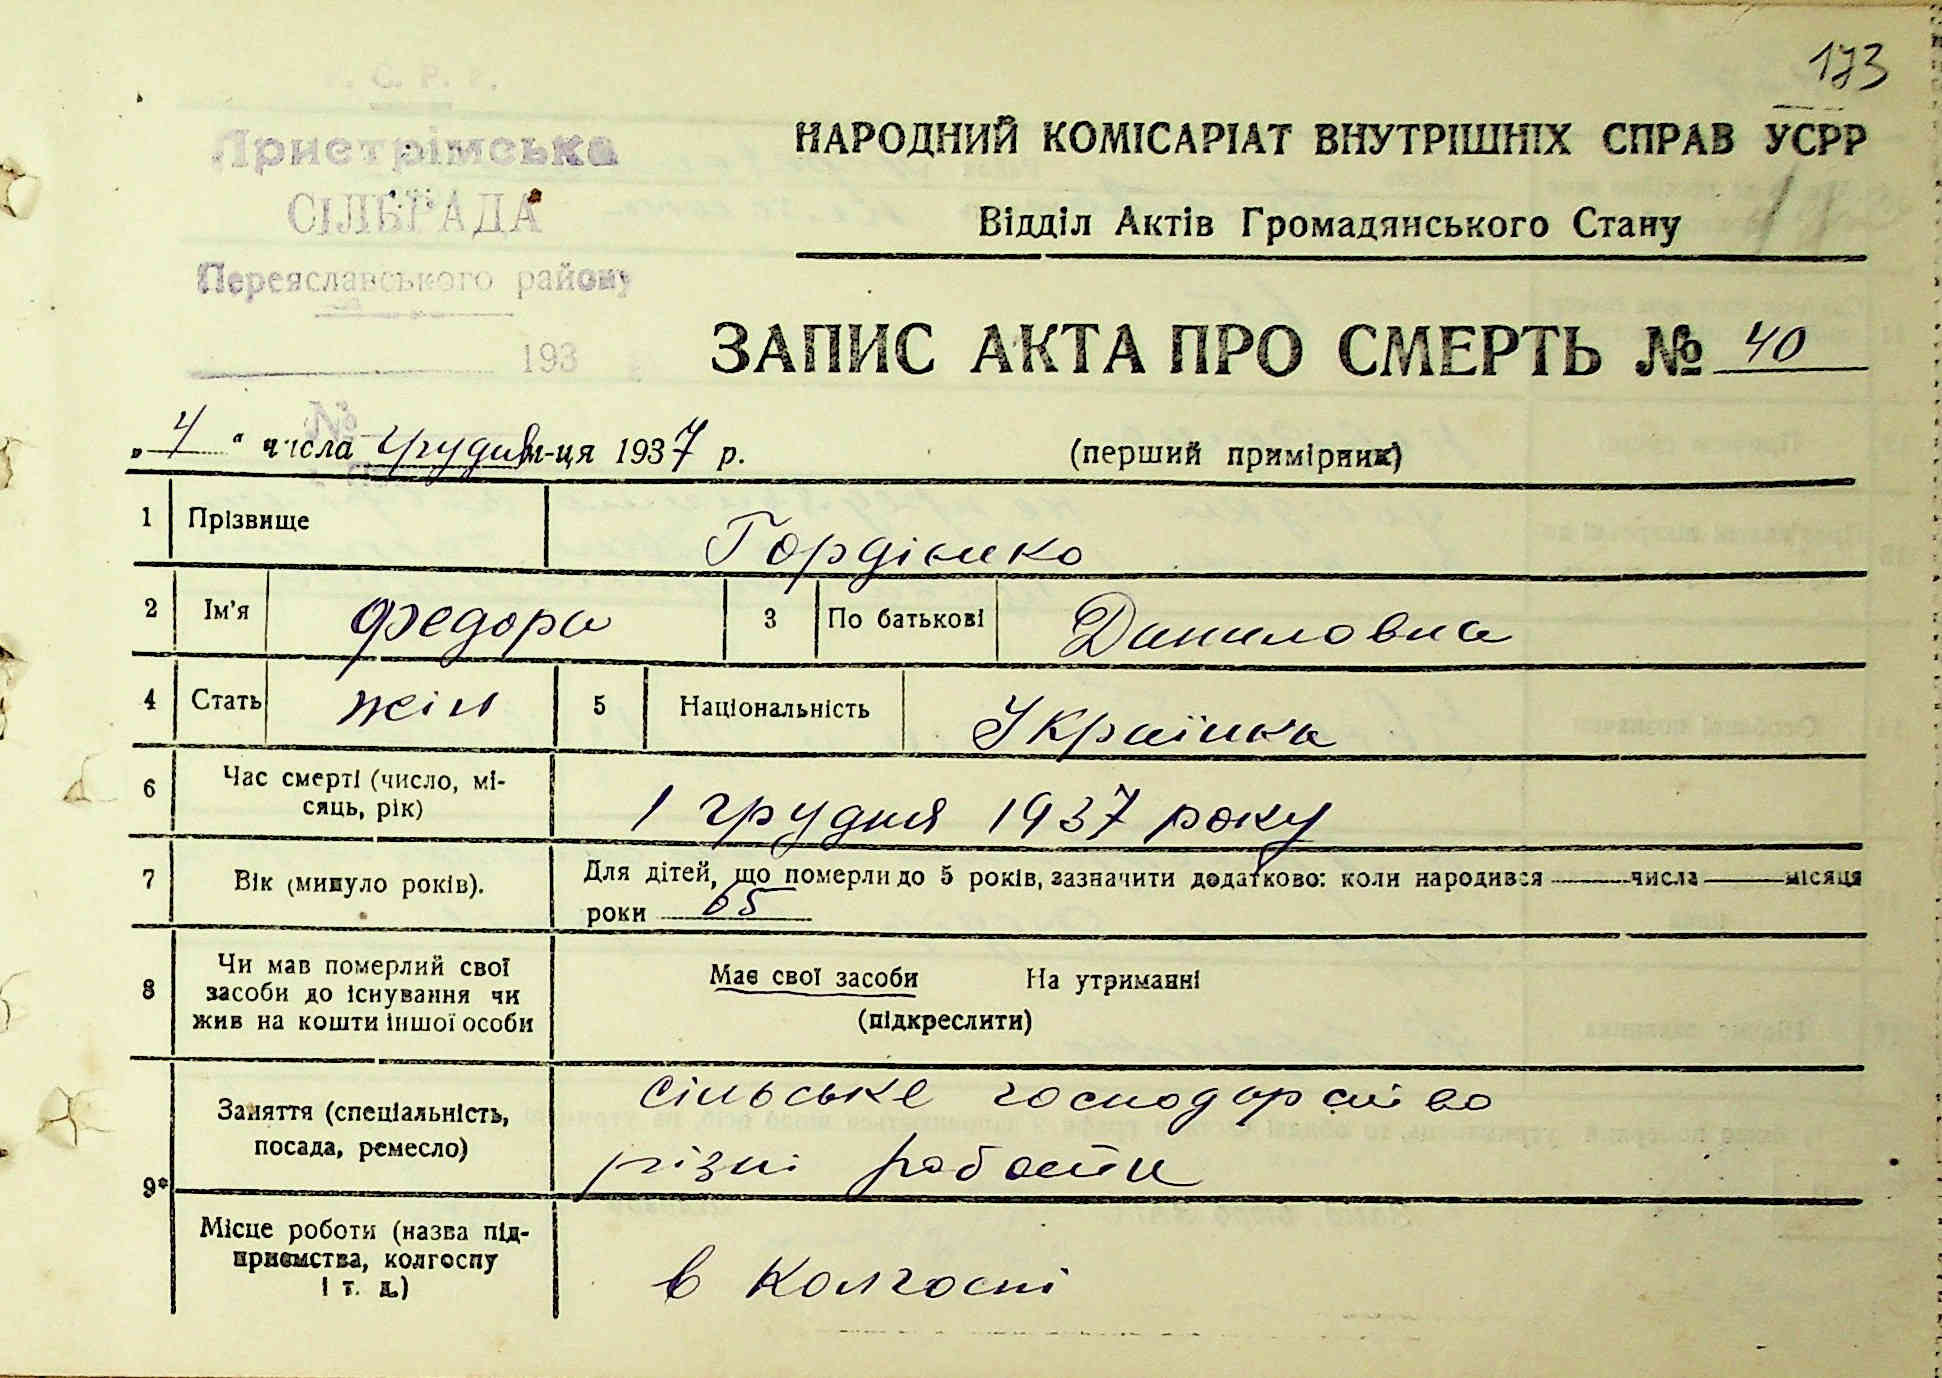 173
Пристрімська
СІЛЬРАДА
Переяславського району
193
№
НАРОДНИЙ КОМІСАРІАТ ВНУТРІШНІХ СПРАВ УСРР
Відділ Актів Громадянського Стану
ЗАПИС АКТА ПРО СМЕРТЬ № 40
„ 4 “ числа грудня м-ця 1937 р.
(перший примірник)
1 Прізвище Гордієнко
2 Ім'я Федора 3 По батькові Даниловна
4 Стать жін 5 Національність Українка
6 Час смерті (число, мі-
сяць, рік) 1 грудня 1937 року
7 Вік (минуло років). Для дітей, що померли до 5 років, зазначити додатково: коли народився числа місяця
роки 65
8 Чи мав померлий свої
засоби до існування чи
жив на кошти іншої особи
Має свої засоби На утриманні
(підкреслити)
9* Заняття (спеціальність,
посада, ремесло)
сільське господарство
різні работи
Місце роботи (назва під-
приємства, колгоспу
і т. д.)
в колгоспі